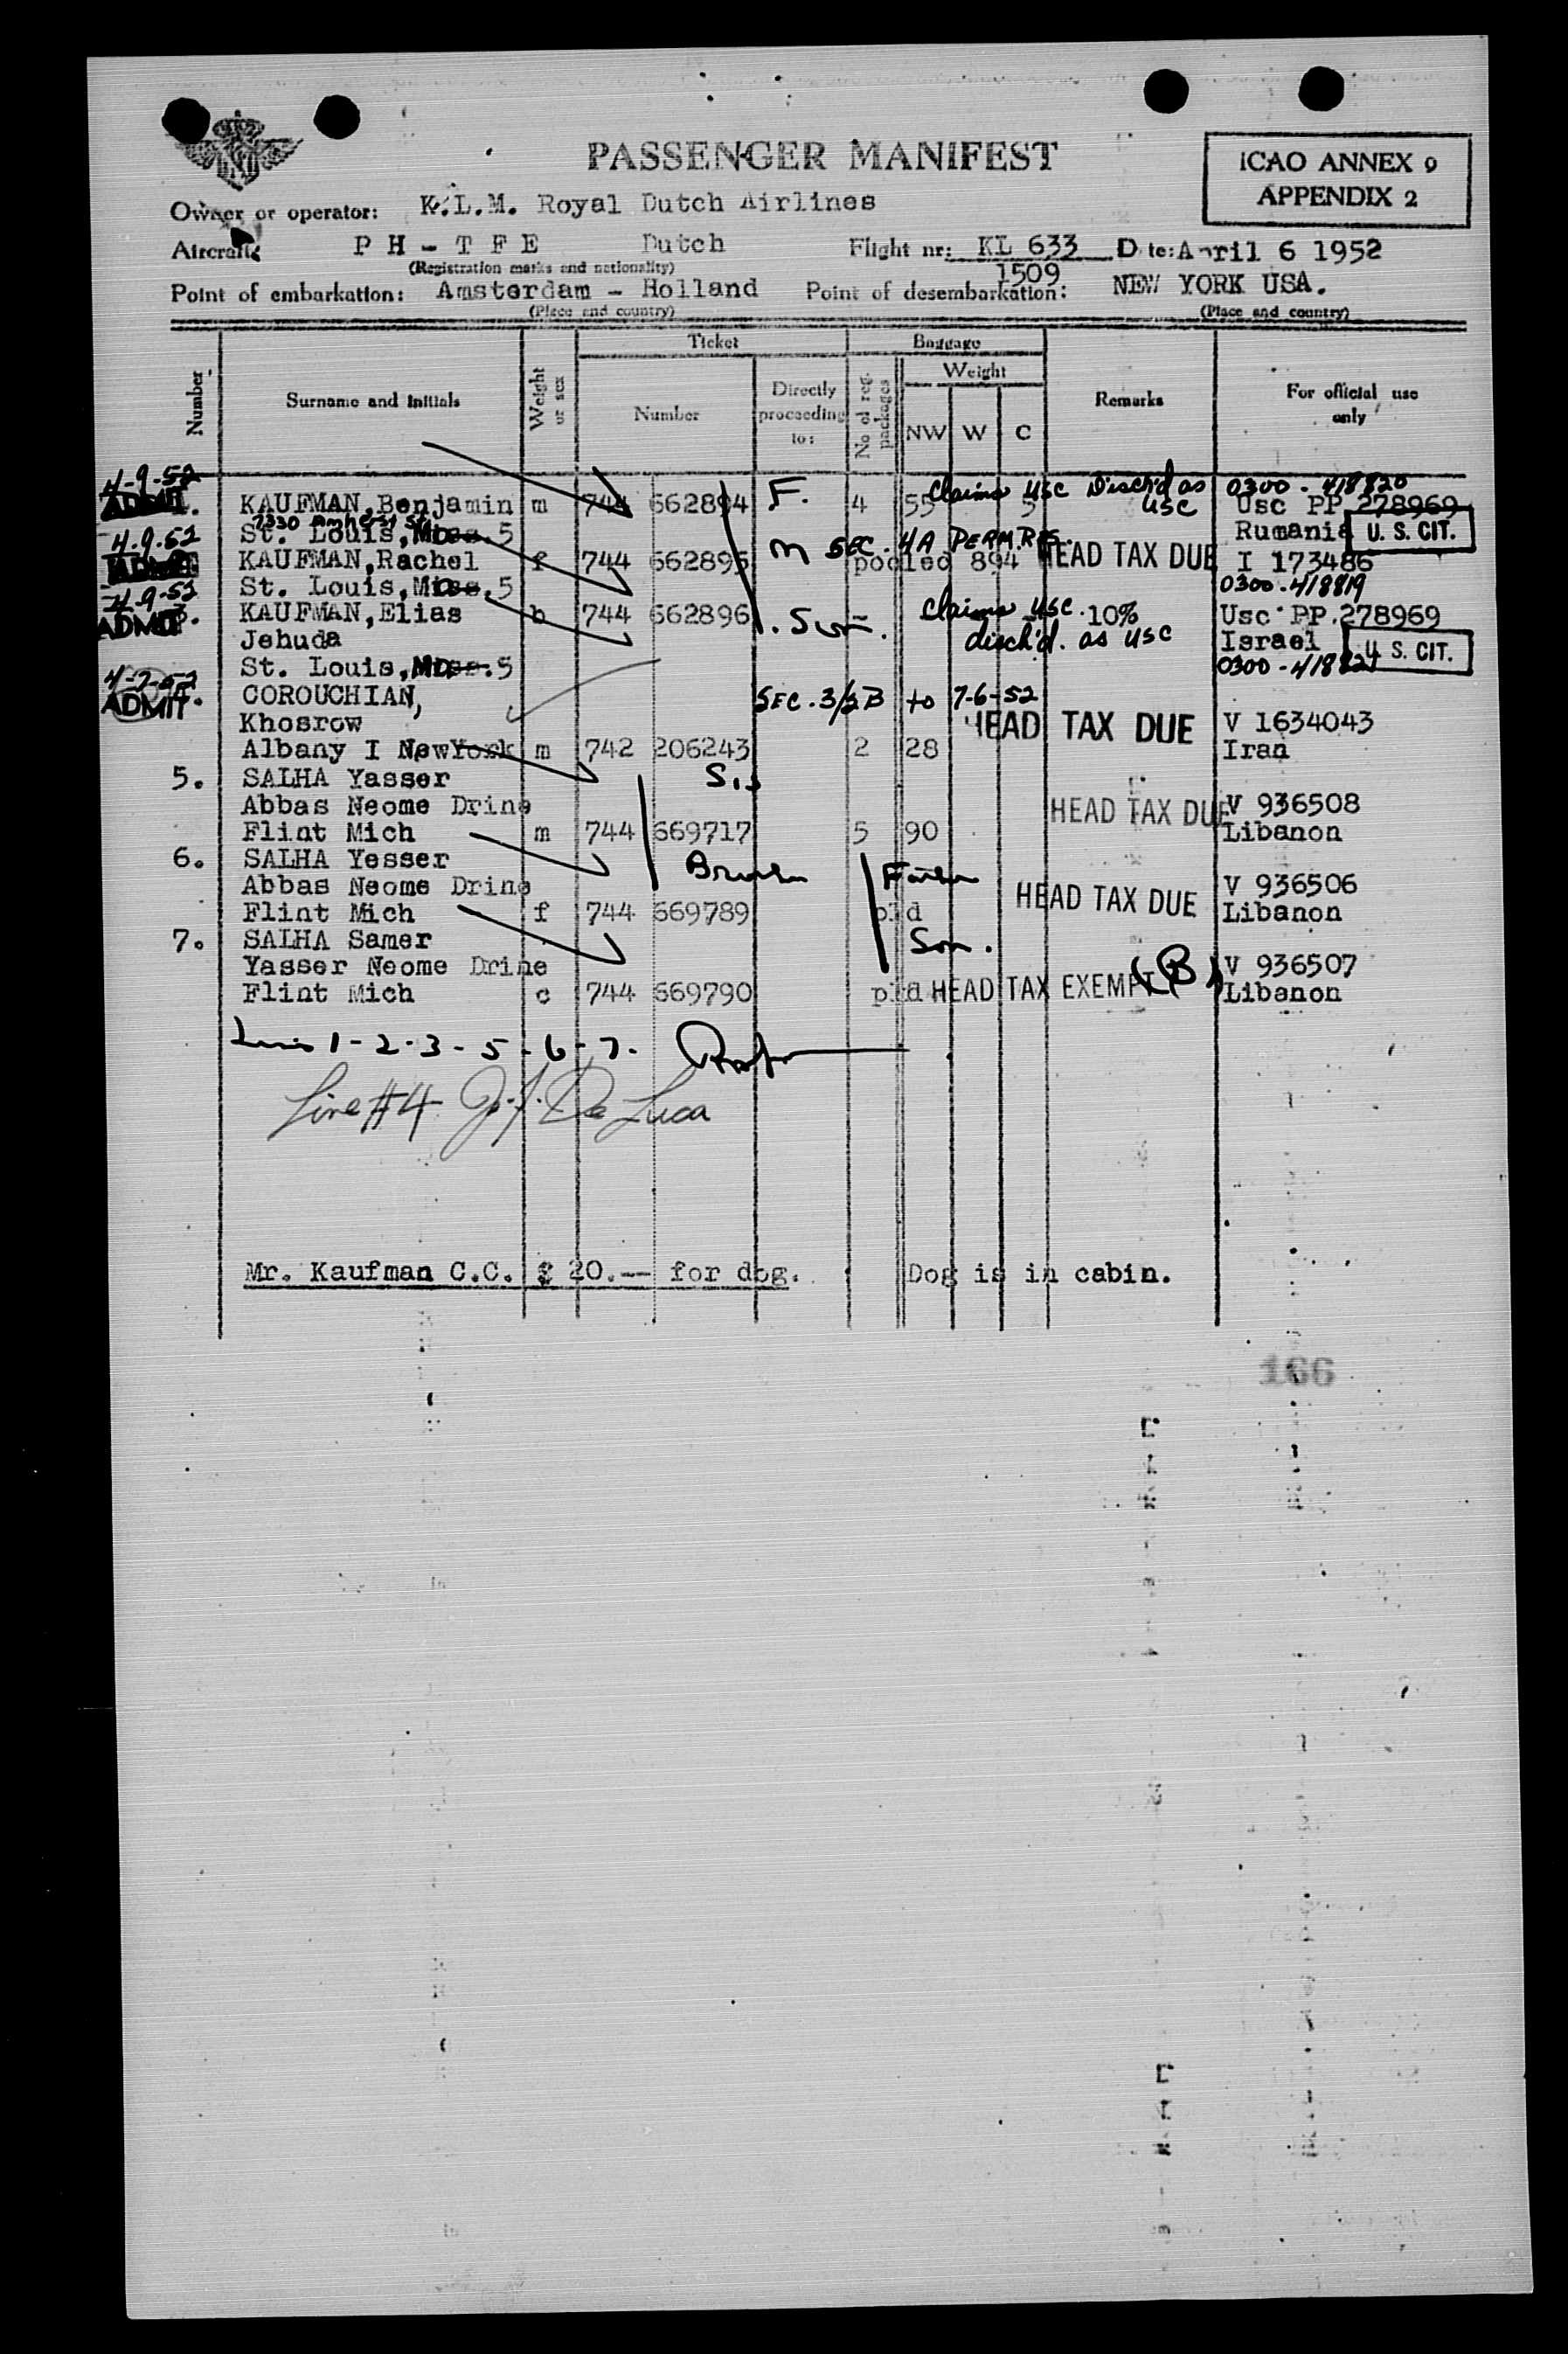 PASSENGER MANIFEST
ICAO ANNEX 9
APPENDIX 2
Owner or operator: K.L.M. Royal Dutch Airlines
Aircraft: PH - TFE Dutch Flight nr: KL 633 D te: April 6 1952
(Registration marks and nationality) 1509
Point of embarkation: Amsterdam - Holland Point of desembarkation: NEW YORK USA.
(Place and country) (Place and country)
Ticket Baggage
Number Surname and initials Weight or sex Number Directly proceeding to: No of reg. packages Weight NW W C Remarks For official use only
4-9-52 Claims USC Disch'd as 0300 - 418820
ADMIT 1. KAUFMAN,Benjamin m 744 662894 F. 4 55 5 USC Usc PP 278969
7330 Amherst St.
St. Louis, Miss. Mo. 5 Rumania U. S. CIT.
4.9.52 M SEC. 4A PERM. RES.
ADMIT KAUFMAN,Rachel f 744 662895 pooled 894 HEAD TAX DUE I 173486
4-9-52 St. Louis, Miss. Mo. 5 0300-418819
ADMIT 3. KAUFMAN,Elias b 744 662896 Son. Claims USC. 10% Usc PP.278969
Jehuda disch'd. as USC Israel U. S. CIT.
St. Louis, Miss. Mo. 5 0300-41882
4-7-52
ADMIT. COROUCHIAN, SEC. 3/2B to 7-6-52
Khosrow HEAD TAX DUE V 1634043
Albany I NewYork m 742 206243 2 28 Iran
5. SALHA Yasser S.
Abbas Neome Drine HEAD TAX DUE V 936508
Flint Mich m 744 669717 5 90 Libanon
6. SALHA Yesser Brother Father
Abbas Neome Drine HEAD TAX DUE V 936506
Flint Mich f 744 669789 pld Libanon
7. SALHA Samer Son.
Yasser Neome Drine (B) V 936507
Flint Mich c 744 669790 pld HEAD TAX EXEMPT Libanon
1-2-3-5-6-7.
Line #4 J.J. De Luca
Mr. Kaufman C.C. $ 20.-- for dog. Dog is in cabin.
166